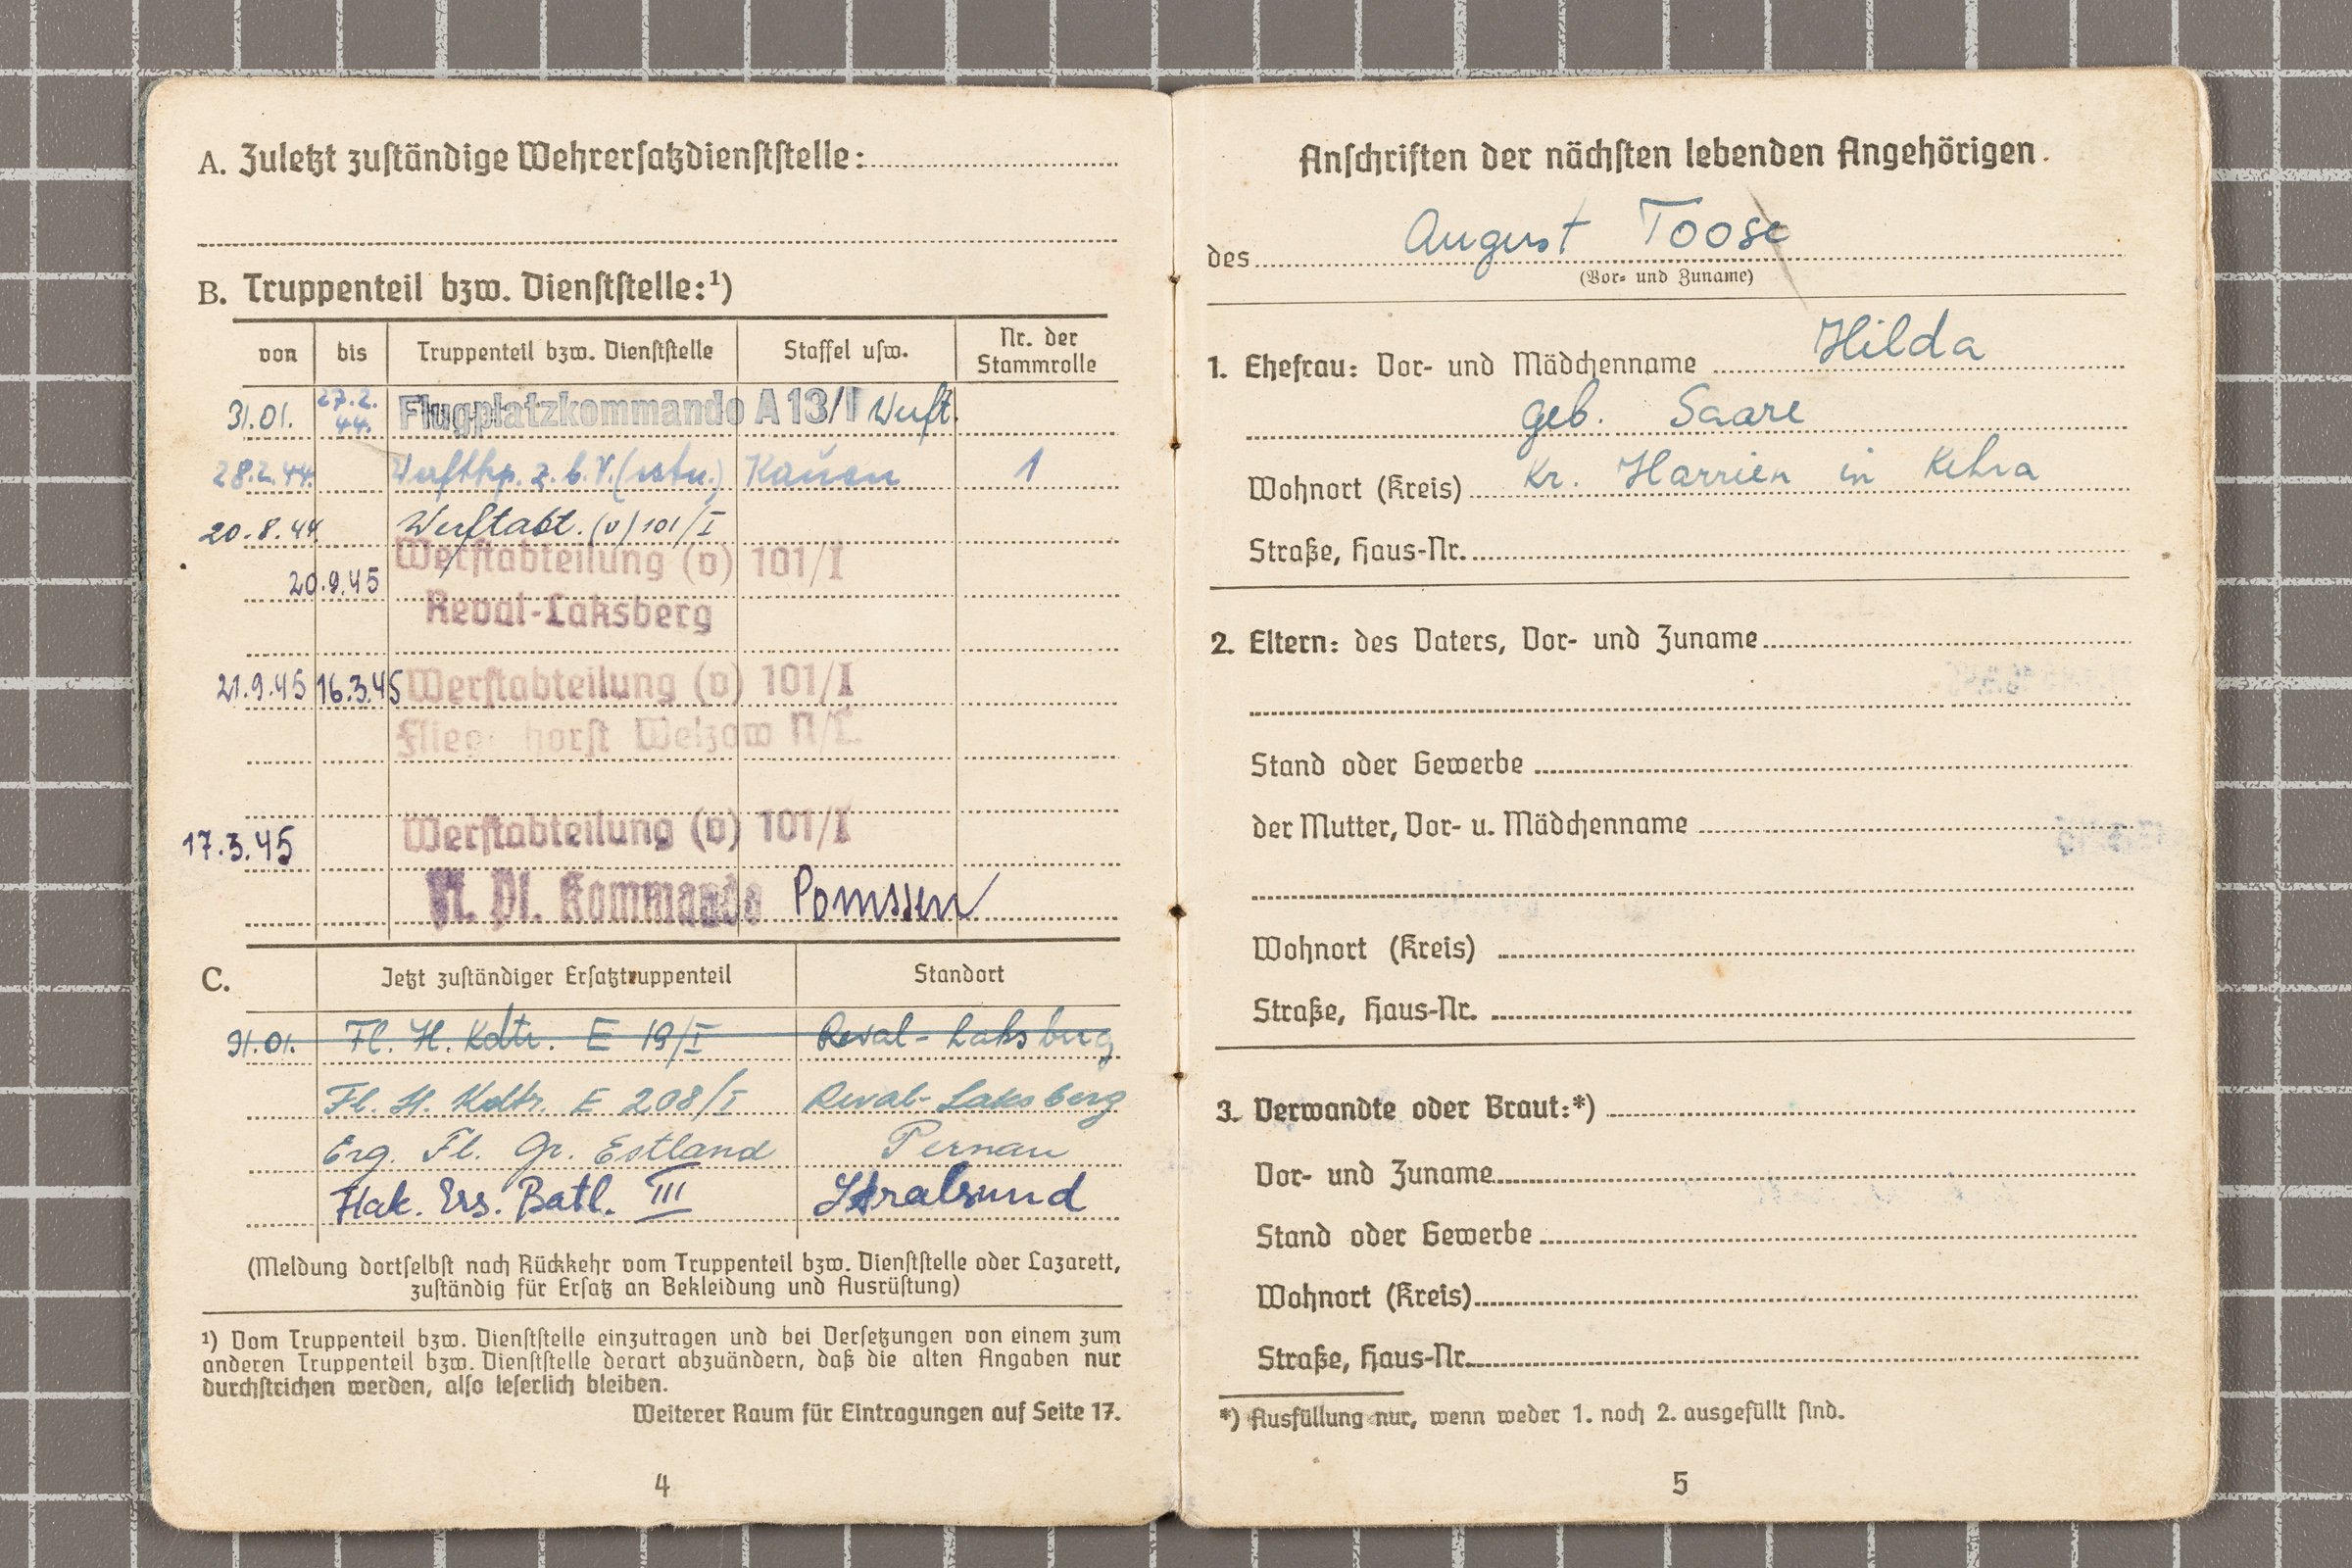 A. Zuletzt zuständige Wehrersatzdienststelle:
B. Truppenteil bzw. Dienststelle:¹)
von bis Truppenteil bzw. Dienststelle Staffel usw. Nr. der Stammrolle
31.01. 27.2.44. Flugplatzkommando A 13/I Werft.
28.2.44. Werftkp. z.b.V. (estn.) Kauen 1
20.8.44 Werftabt. (v) 101/I
Werftabteilung (v) 101/I
20.9.45
Reval-Laksberg
21.9.45 16.3.45 Werftabteilung (v) 101/I
Flieg horst Welzow N/L.
17.3.45 Werftabteilung (v) 101/I
Fl. Pl. Kommando Pomssen
C. Jetzt zuständiger Ersatztruppenteil Standort
31.01. Fl. H. Kdtr. E 19/I Reval-Laksberg
Fl. H. Kdtr. E 208/I Reval-Laksberg
Erg. Fl. Gr. Estland Pernau
Flak. Ers. Batl. III Stralsund
(Meldung dortselbst nach Rückkehr vom Truppenteil bzw. Dienststelle oder Lazarett,
zuständig für Ersatz an Bekleidung und Ausrüstung)
¹) Vom Truppenteil bzw. Dienststelle einzutragen und bei Versetzungen von einem zum
anderen Truppenteil bzw. Dienststelle derart abzuändern, daß die alten Angaben nur
durchstrichen werden, also leserlich bleiben.
Weiterer Raum für Eintragungen auf Seite 17.
4
Anschriften der nächsten lebenden Angehörigen.
des August Toose
(Vor- und Zuname)
1. Ehefrau: Vor- und Mädchenname Hilda
geb. Saare
Wohnort (Kreis) Kr. Harrien in Kehra
Straße, Haus-Nr.
2. Eltern: des Vaters, Vor- und Zuname
Stand oder Gewerbe
der Mutter, Vor- u. Mädchenname
Wohnort (Kreis)
Straße, Haus-Nr.
3. Verwandte oder Braut:*)
Vor- und Zuname
Stand oder Gewerbe
Wohnort (Kreis)
Straße, Haus-Nr.
*) Ausfüllung nur, wenn weder 1. noch 2. ausgefüllt sind.
5